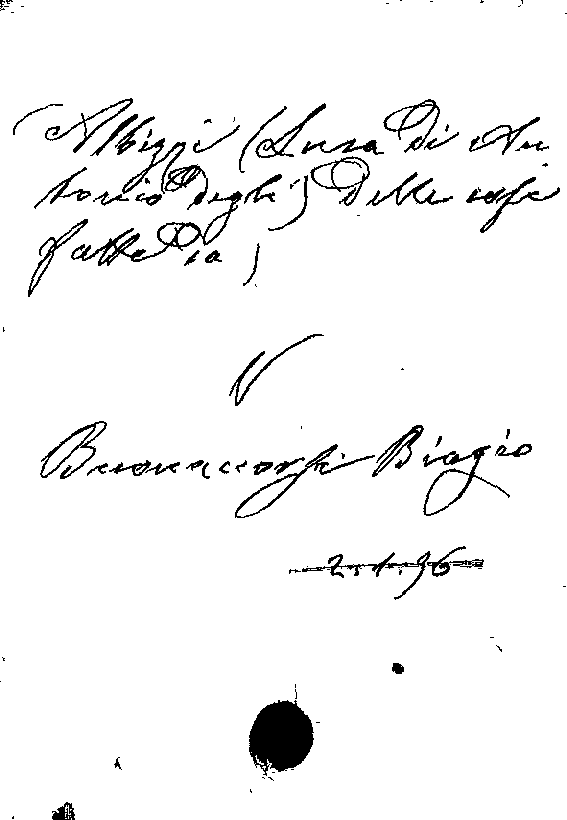 Albizzi (Luca di An
tonio degli) Delle cose
fatte da)
V
Buonaccorsi Biagio
2.1.36